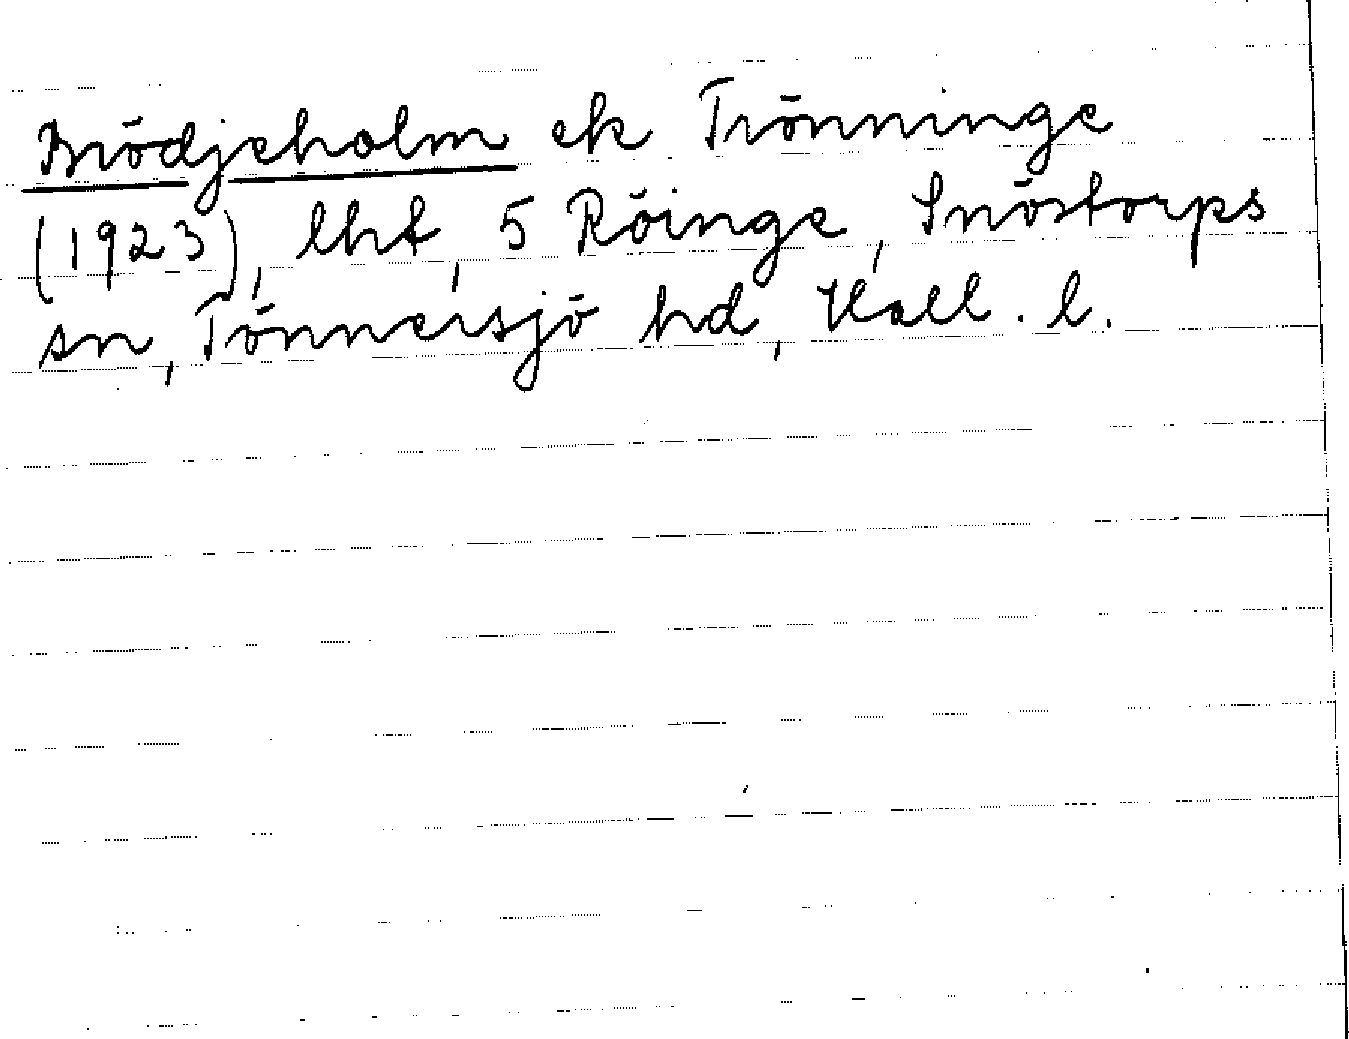 Brödjeholm ek Trönninge
(1923), lht, 5 Röinge, Snöstorps
sn, Tönnersjö hd, Hall. l.